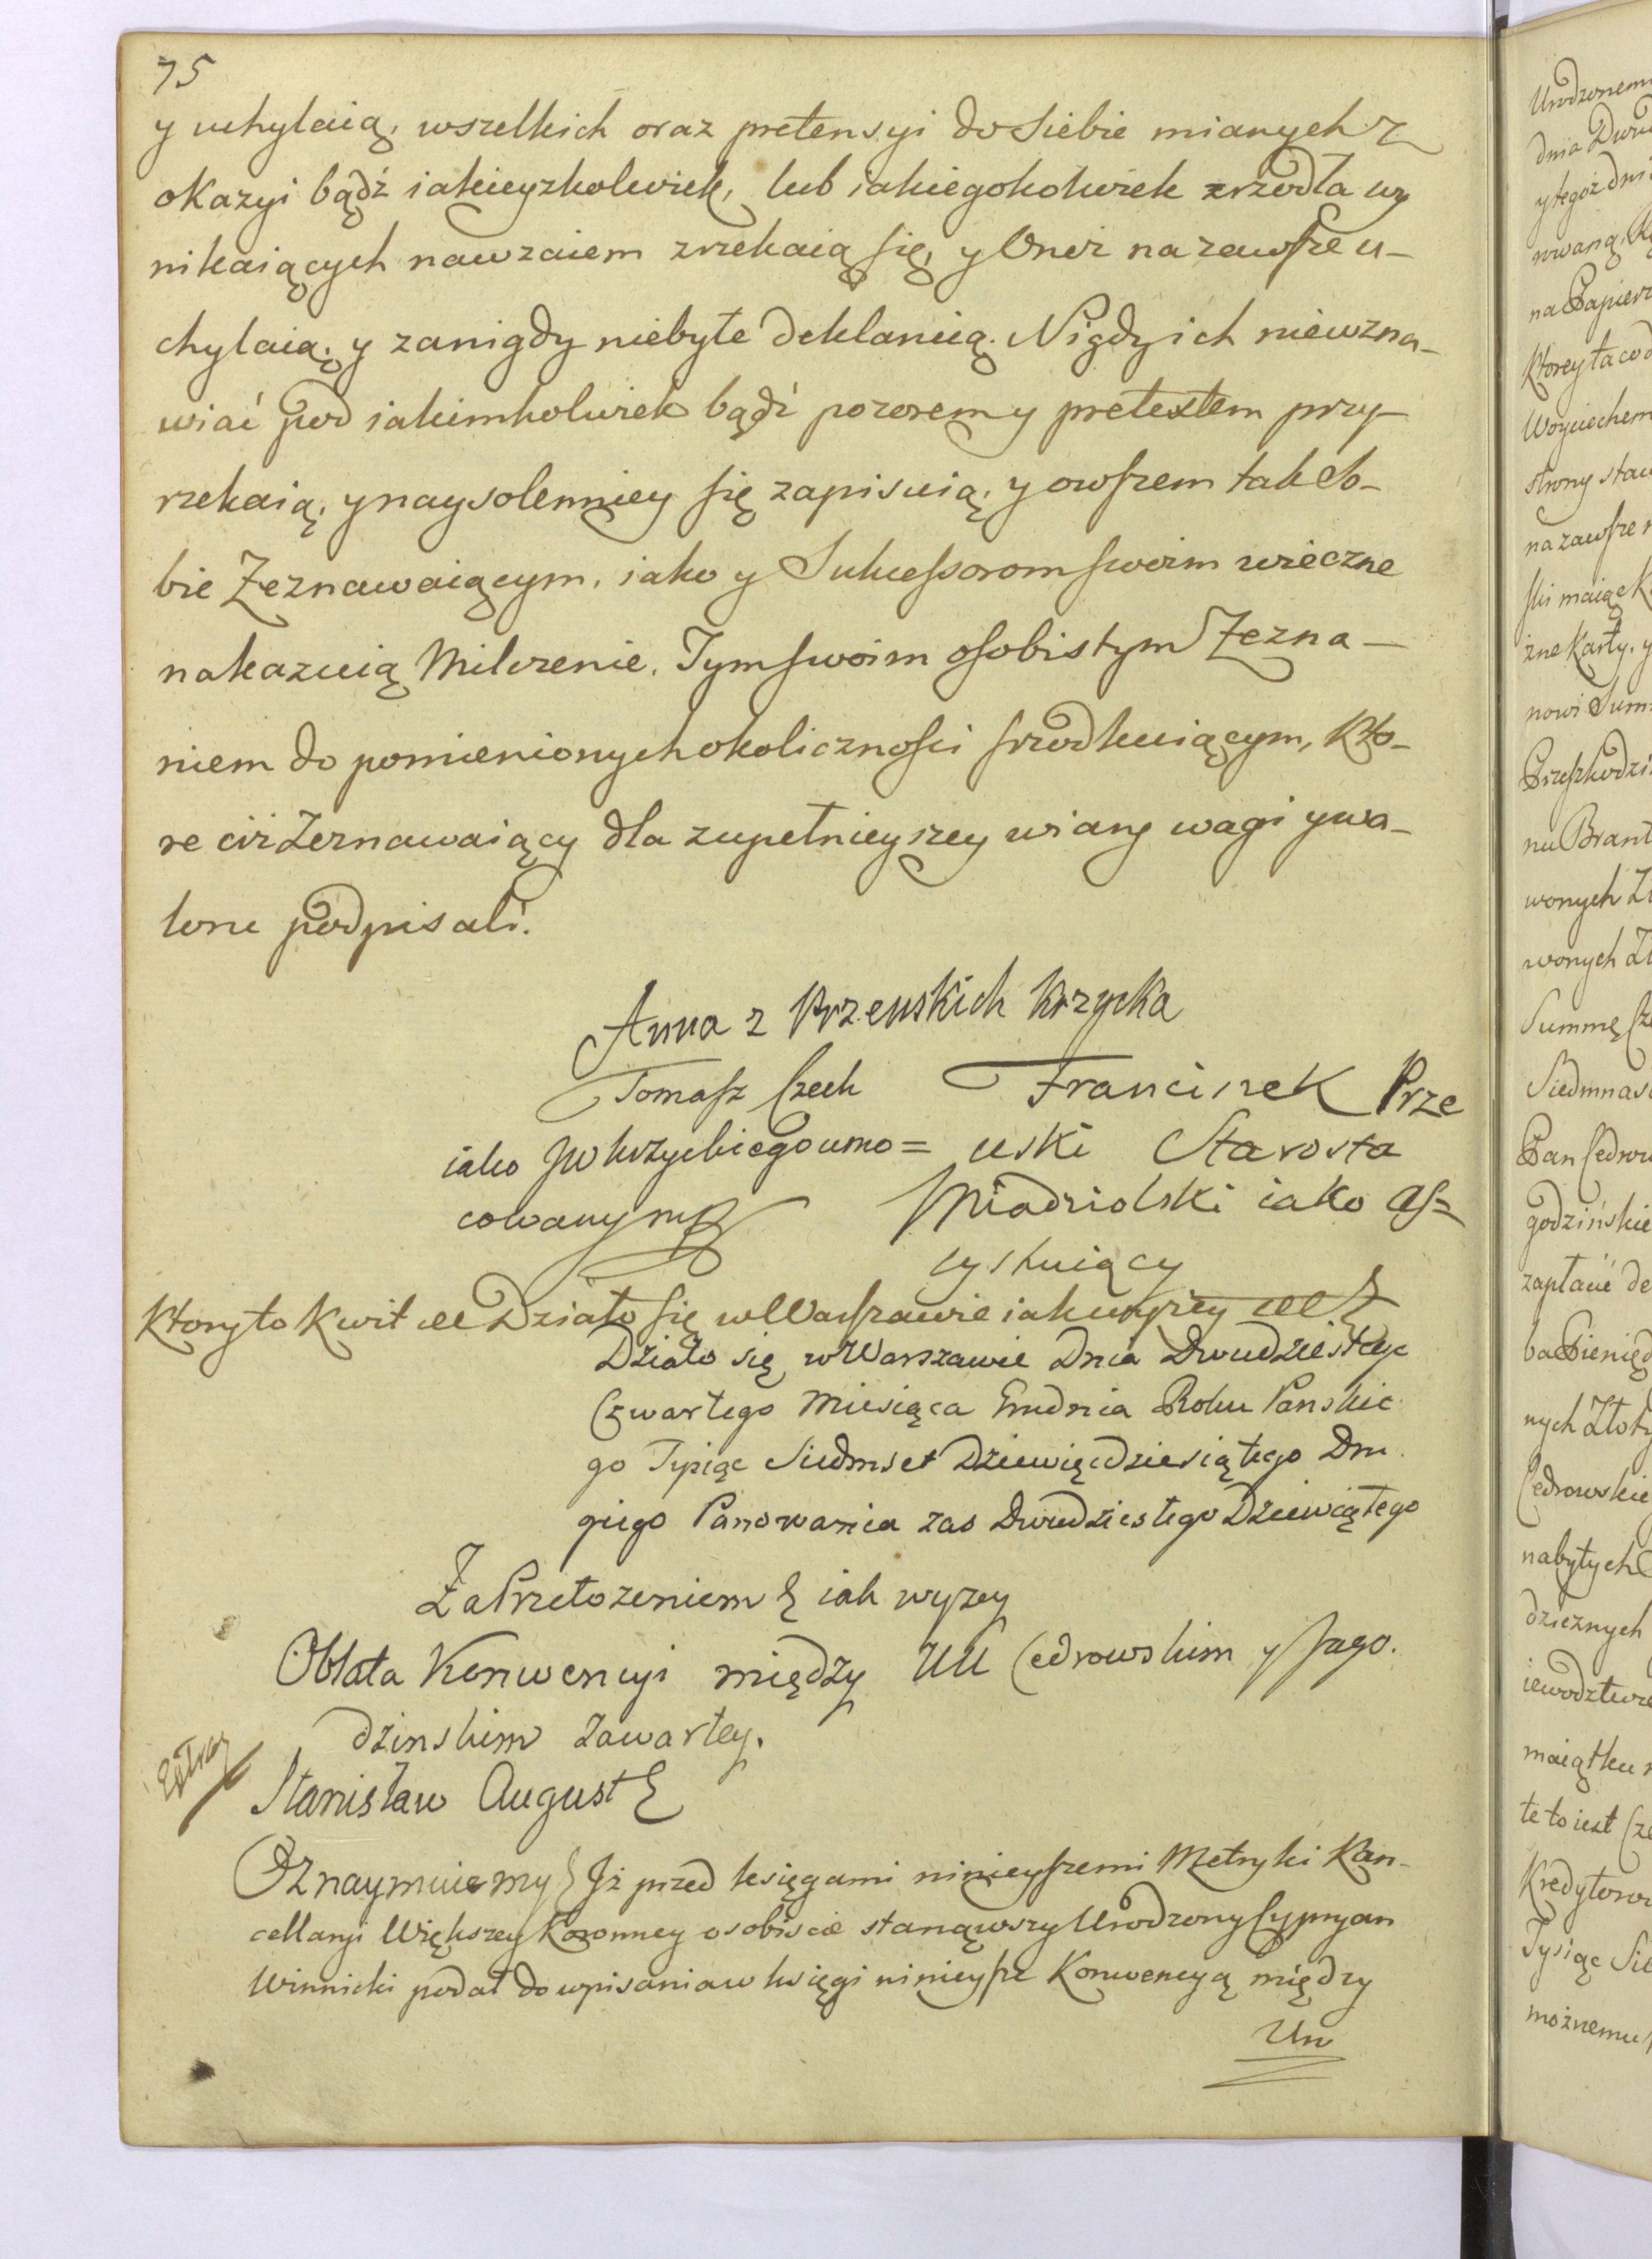 75
y uchylaią, wszelkich oraz pretensyi do Siebie mianych z
okazyi bądź iakieyżkolwiek, lub iakiegokolwiek zrzodła wy
nikaiących nawzaiem zrzekaią się, y Onei na zawsze u-
chylaią, y zanigdy niebyłe deklaruią. Nigdy ich niewzna-
wiać pod iakimkolwiek bądź pozorem y pretextem przy-
rzekaią, y naysolenniey się zapisuią, y owszem tak So-
bie Zeznawaiącym, iako y Sukcessorom swoim wieczne
nakazuią Milczenie. Tym swoim osobistym Zezna-
niem do pomienionych okoliczności srzodkuiącym, Kto-
re ciż Zeznawaiący dla zupełnieyszey wiary wagi y wa-
loru podpisali.
Anna z Przeuskich Krzycka
Tomasz Czech Franciszek Prze
iako JW Krzyckiego umo= uski Starosta
cowany mp Miadziolski iako As=
systuiący
Ktory to Kwit &c Działo się w Warszawie iak wyżey &c
Działo się w Warszawie Dnia Dwudziestego
Czwartego Miesiąca Grudnia Roku Panskie
go Tysiąc Siedmset Dziewięćdziesiątego Dru
giego Panowania zas Dwudziestego Dziewiątego
Za Przełozeniem & iak wyzey
Oblata Konwencyi między UU Cedrowskim y Jago.
dzinskim zawartey.
Extra
Stanisław August &
Oznaymuiemy & Iż przed księgami ninieyszemi Metryki Kan-
cellaryi Większey Koronney osobiscie stanąwszy Urodzony Cypryan
Winnicki podał do wpisania w księgi ninieysze Konwencyą między
Ur
Urodzonem
dnia Dwu
y tegoż dni
na Papierz
Ktorey ta co d
Woyciechem
strony staw
na zawsze n
ski maiąc K
żne Karty, y
nowi Sum
Przeszkodzi
nu Brant
wonych Zł
wonych Zł
Summę Cze
Siedmnas
Pan Cedrow
godzińskie
zapłacić de
ba Pienięd
nych Złoty
Cedrowskie
nabytych
dzicznych
iewodztwie
maiątku
te to iest Cze
Kredytorow
Tysiąc Sie
możnemu